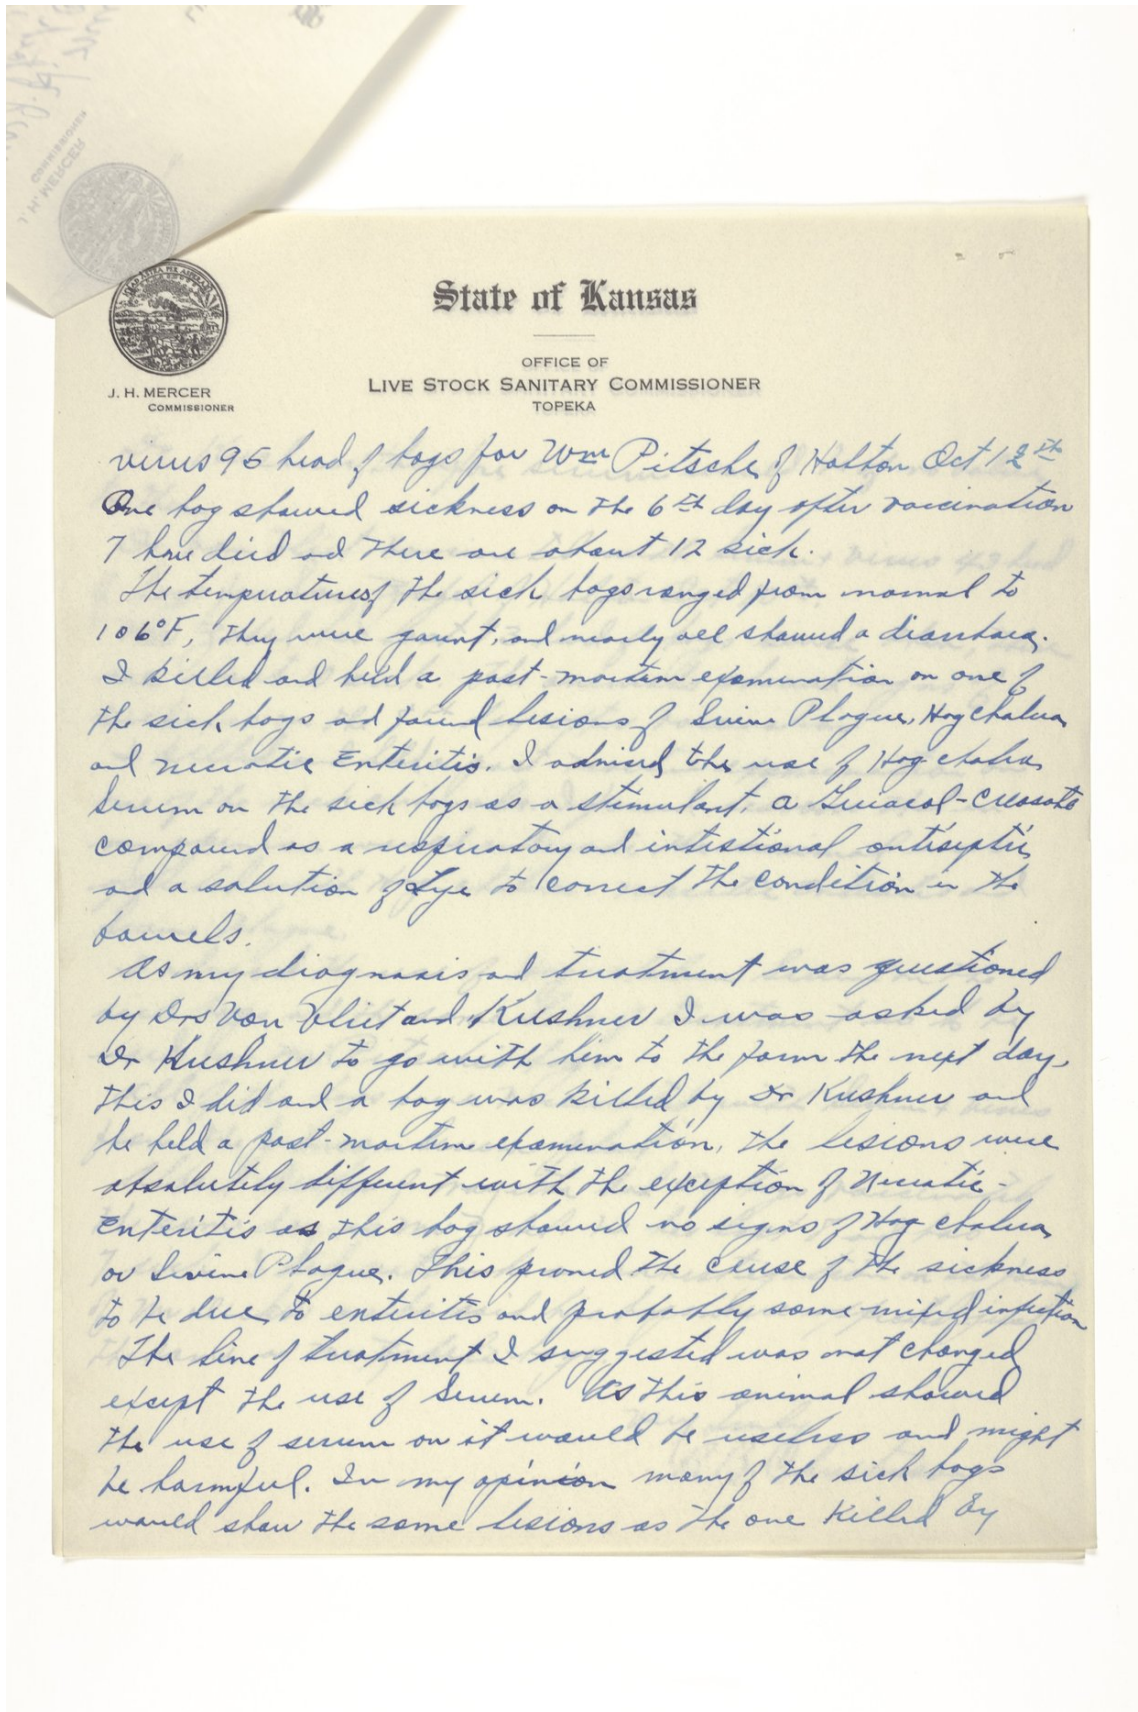 State of Kansas
OFFICE OF
LIVE STOCK SANITARY COMMISSIONER
TOPEKA
J. H. MERCER
COMMISSIONER
virus 95 head of hogs for Wm Pitsche of Holton Oct 12th
One hog showed sickness on the 6th day after vaccination
7 have died and there are about 12 sick.
The temperatures of the sick hogs ranged from normal to
106°F, they were gaunt, and nearly all showed a diarrhaea.
I killed and held a post-mortem examination on one of
the sick hogs and found lesions of Swine Plague, Hog Cholera
and necrotic Enteritis. I advised the use of Hog cholera
Serum on the sick hogs as a stimulant, a Guiacol-Creosote
compound as a respiratory and intestional antiseptic
and a solution of Lye to correct the condition in the
bowels.
As my diagnosis and treatment was questioned
by Drs Van Vliet and Kushner I was asked by
Dr Kushner to go with him to the farm the next day.
this I did and a hog was killed by Dr Kushner and
he held a post-mortem examination, the lesions were
absolutely different with the exception of Necrotic-
Enteritis as this hog showed no signs of Hog cholera
or Swine Plague. This proved the cause of the sickness
to be due to enteritis and probably some mixed infection
The line of treatment I suggested was not changed
except the use of Serum. As this animal showed
the use of serum on it would be useless and might
be harmful. In my opinion many of the sick hogs
would show the same lesions as the one killed by